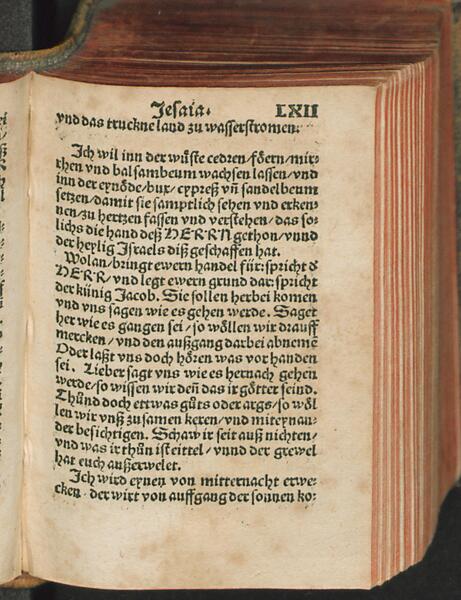 Jesaia. LXII
vnd das truckne land zu wasserstromen.
Jch wil inn der wůste cedren/fŏern/mir⸗
rhen vnd balsambeum wachsen lassen/vnd
inn der eynŏde/bux/cypreß vñ sandelbeum
setzen/damit sie samptlich sehen vnd erken⸗
nen/zu hertzen fassen vnd verstehen/das so⸗
lichs die hand deß HERRN gethon/vnnd
der heylig Jsraels diß geschaffen hat.
Wolan/bringt ewern handel für: spricht d
HERR/vnd legt ewern grund dar: spricht
der künig Jacob. Sie sollen herbei komen
vnd vns sagen wie es gehen werde. Saget
her wie es gangen sei/so wŏllen wir drauff
mercken/vnd den außgang darbei abnemē
Oder laßt vns doch hŏren was vor handen
sei. Lieber sagt vns wie es hernach gehen
werde/so wissen wir deñ das ir gŏtter seind.
Thůnd doch ettwas gůts oder args/so wŏl
len wir vnß zusamen keren/vnd miteynan⸗
der besichtigen. Schaw ir seit auß nichten/
vnd was ir thůn ist eittel/vnnd der grewel
hat euch außerwelet.
Jch wird eynen von mitternacht erwe⸗
cken. der wirt von auffgang der sonnen ko⸗